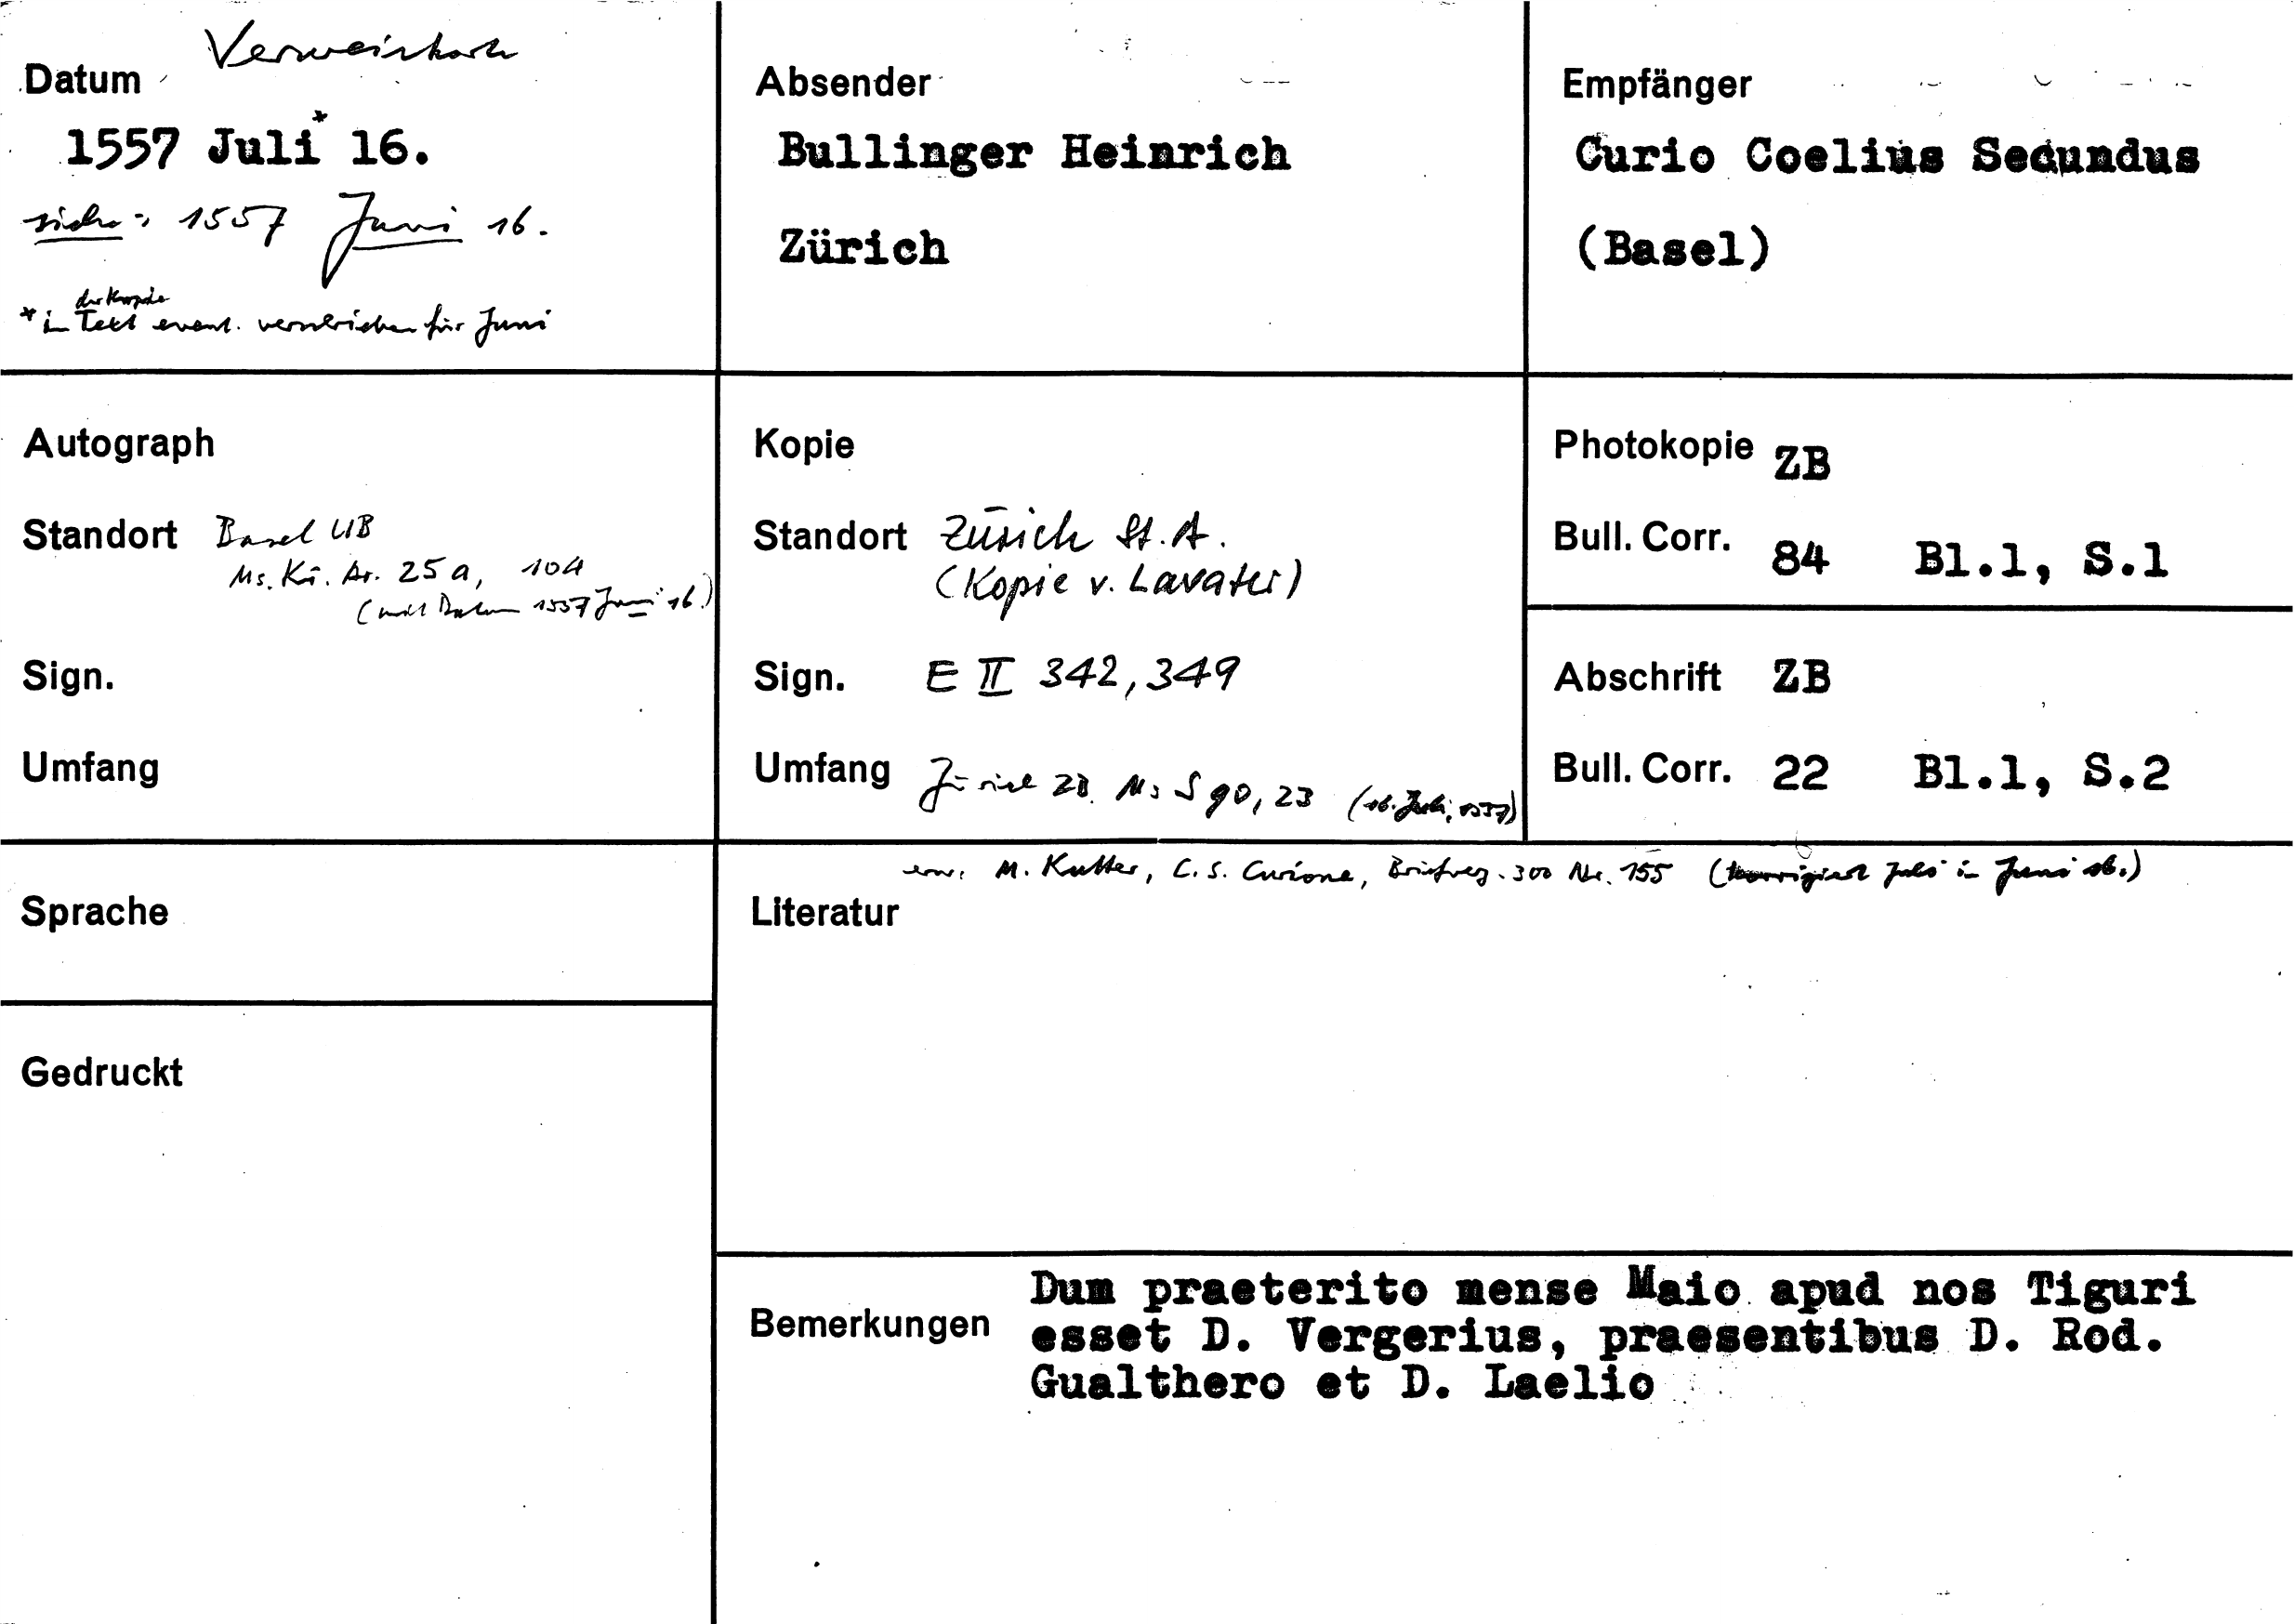 Verweiskarte
Datum
1557 Juli* 16.
siehe: 1557 Juni 16.
der Kopie
* in Text event. verschrieben für Juni
Absender
Bullinger Heinrich
Zürich
Empfänger
Curio Coelius Secundus
(Basel)
Autograph
Standort Basel UB
Ms. Ki. Ar. 25a, 104
(mit Datum 1557 Juni 16.)
Sign.
Umfang
Kopie
Standort Zürich St.A.
(Kopie v. Lavater)
Sign. E II 342, 349
Umfang Zürich ZB. Ms S 90, 23 (16. Juli, 1557)
Photokopie ZB
Bull. Corr. 84 Bl.1, S.1
Abschrift ZB
Bull. Corr. 22 Bl.1, S.2
Sprache
Gedruckt
erw. M. Kutter, C. S. Curione, Briefverz. 300 Nr. 155 (korrigiert Juli in Juni 16.)
Literatur
Bemerkungen
Dum praeterito mense Maio apud nos Tiguri
esset D. Vergerius, praesentibus D. Rod.
Gualthero et D. Laelio